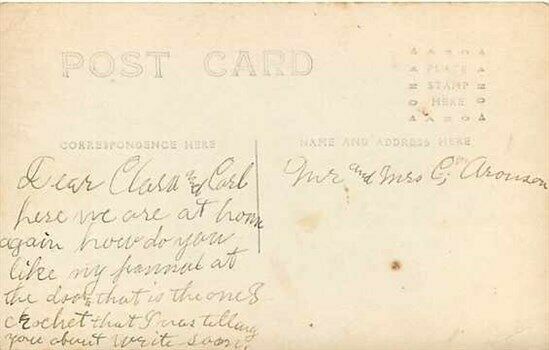 POST CARD
PLACE
STAMP
HERE
CORRESPONDENCE HERE
NAME AND ADDRESS HERE
Dear Clara and Carl
here we are at home
again how do you
like my pannul at
the door, that is the one I
crochet that I was telling
you about write soon.
Mr and Mrs C, Aronson